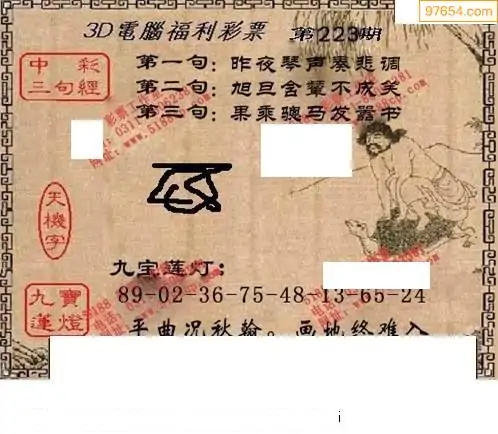 97654.com
3D電腦福利彩票 第223期
中彩
三句經
第一句：昨夜琴声奏悲调
第二句：旭旦金輦不成笑
第三句：果乘骢马发嚣书
天機字
九宝莲灯：
九寶
蓮燈
89-02-36-75-48-13-65-24
平曲况秋翰。画地终难入
i